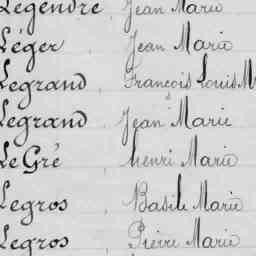 Legendre Jean Marie
Léger Jean Marie
Legrand François Louis M
Legrand Jean Marie
Le Gré henri Marie
Legros Basile Marie
Legros Pierre Marie